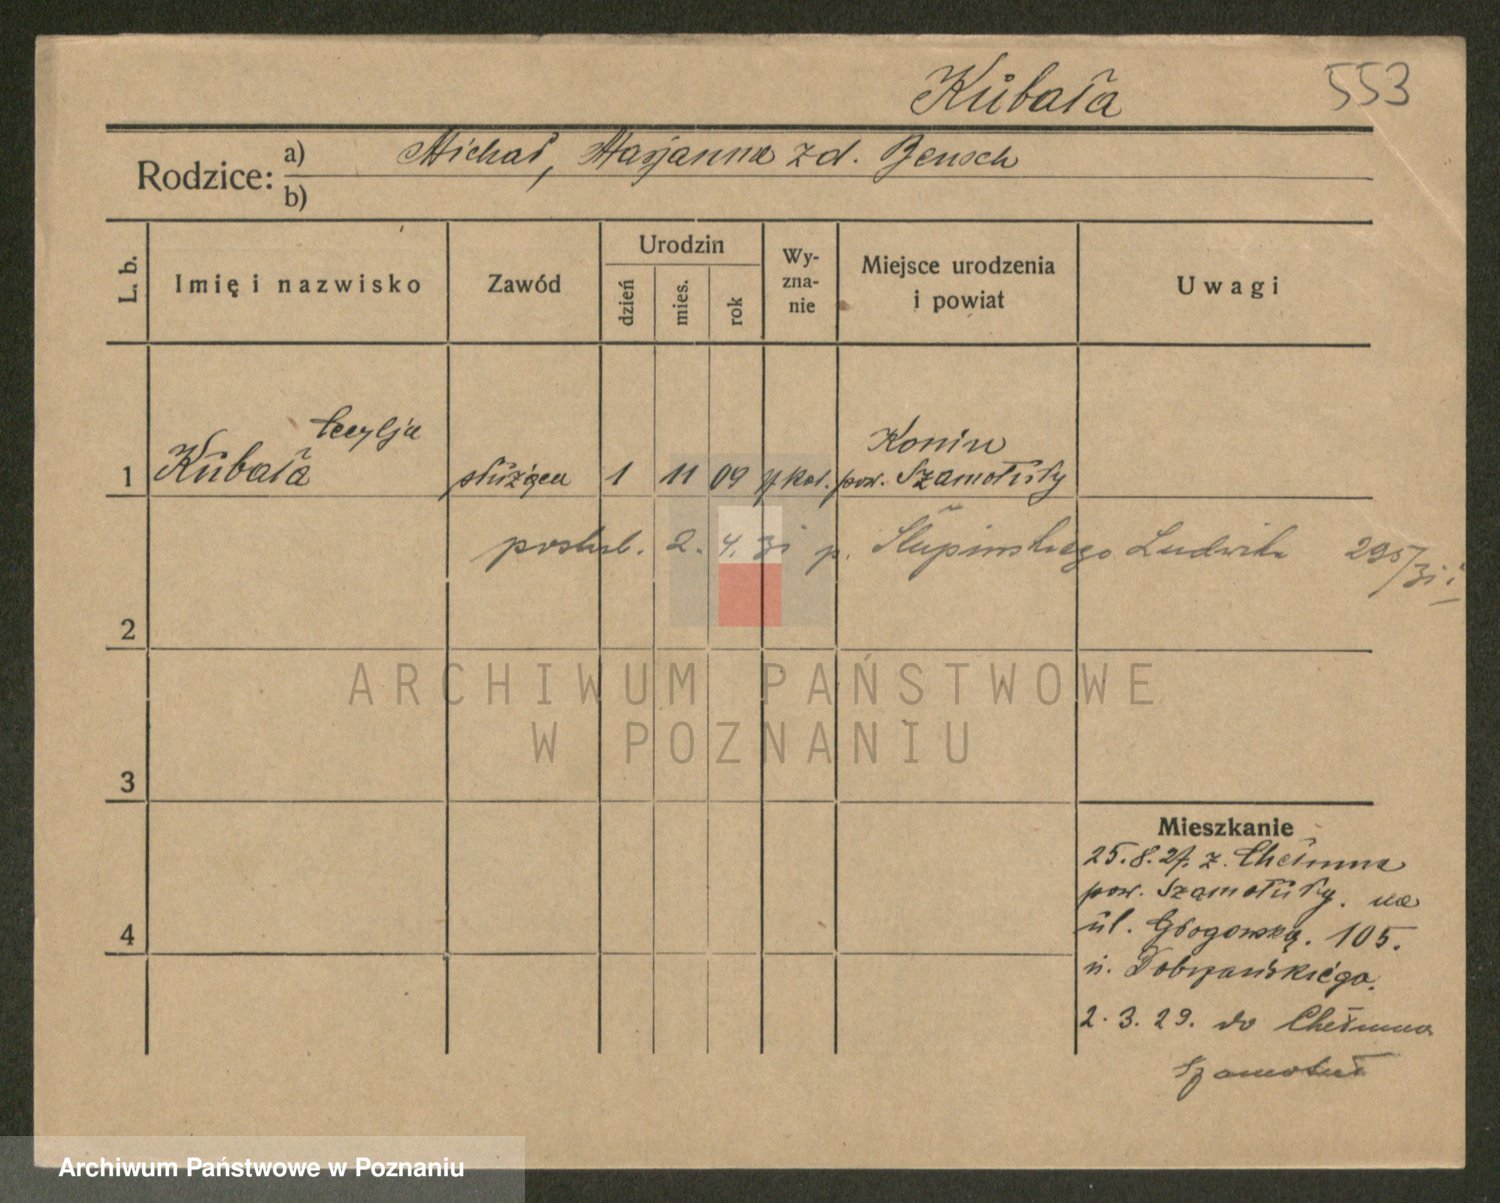 Kubała 553
Rodzice: a) Michał, Marjanna zd. Bensch
b)
L. b. Imię i nazwisko Zawód Urodzin dzień mies. rok Wy-zna-nie Miejsce urodzenia i powiat Uwagi
Cecylja Konin
1 Kubała służąca 1 11 09 rz. kat. pow. Szamotuły
2. 4. 31 p. Słupińskiego Ludwik 295/31
2
ARCHIWUM PAŃSTWOWE
W POZNANIU
3
Mieszkanie
25.8.27. z Chełmna
pow. Szamotuły. na
4 ul. Głogowską. 105.
u. Dobrzańskiego.
2.3.29. do Chełmna
Szamotuł
Archiwum Państwowe w Poznaniu